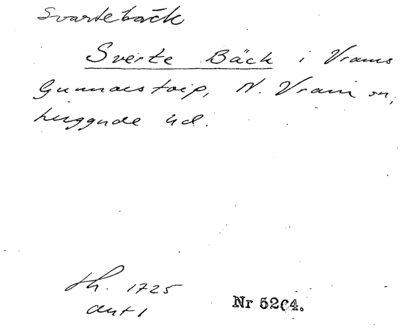 Svartebäck
Sverte Bäck i Vrams
Gunnarstorp, N. Vram sn,
Luggude hd.
th. 1725
ant 1
Nr 5264.